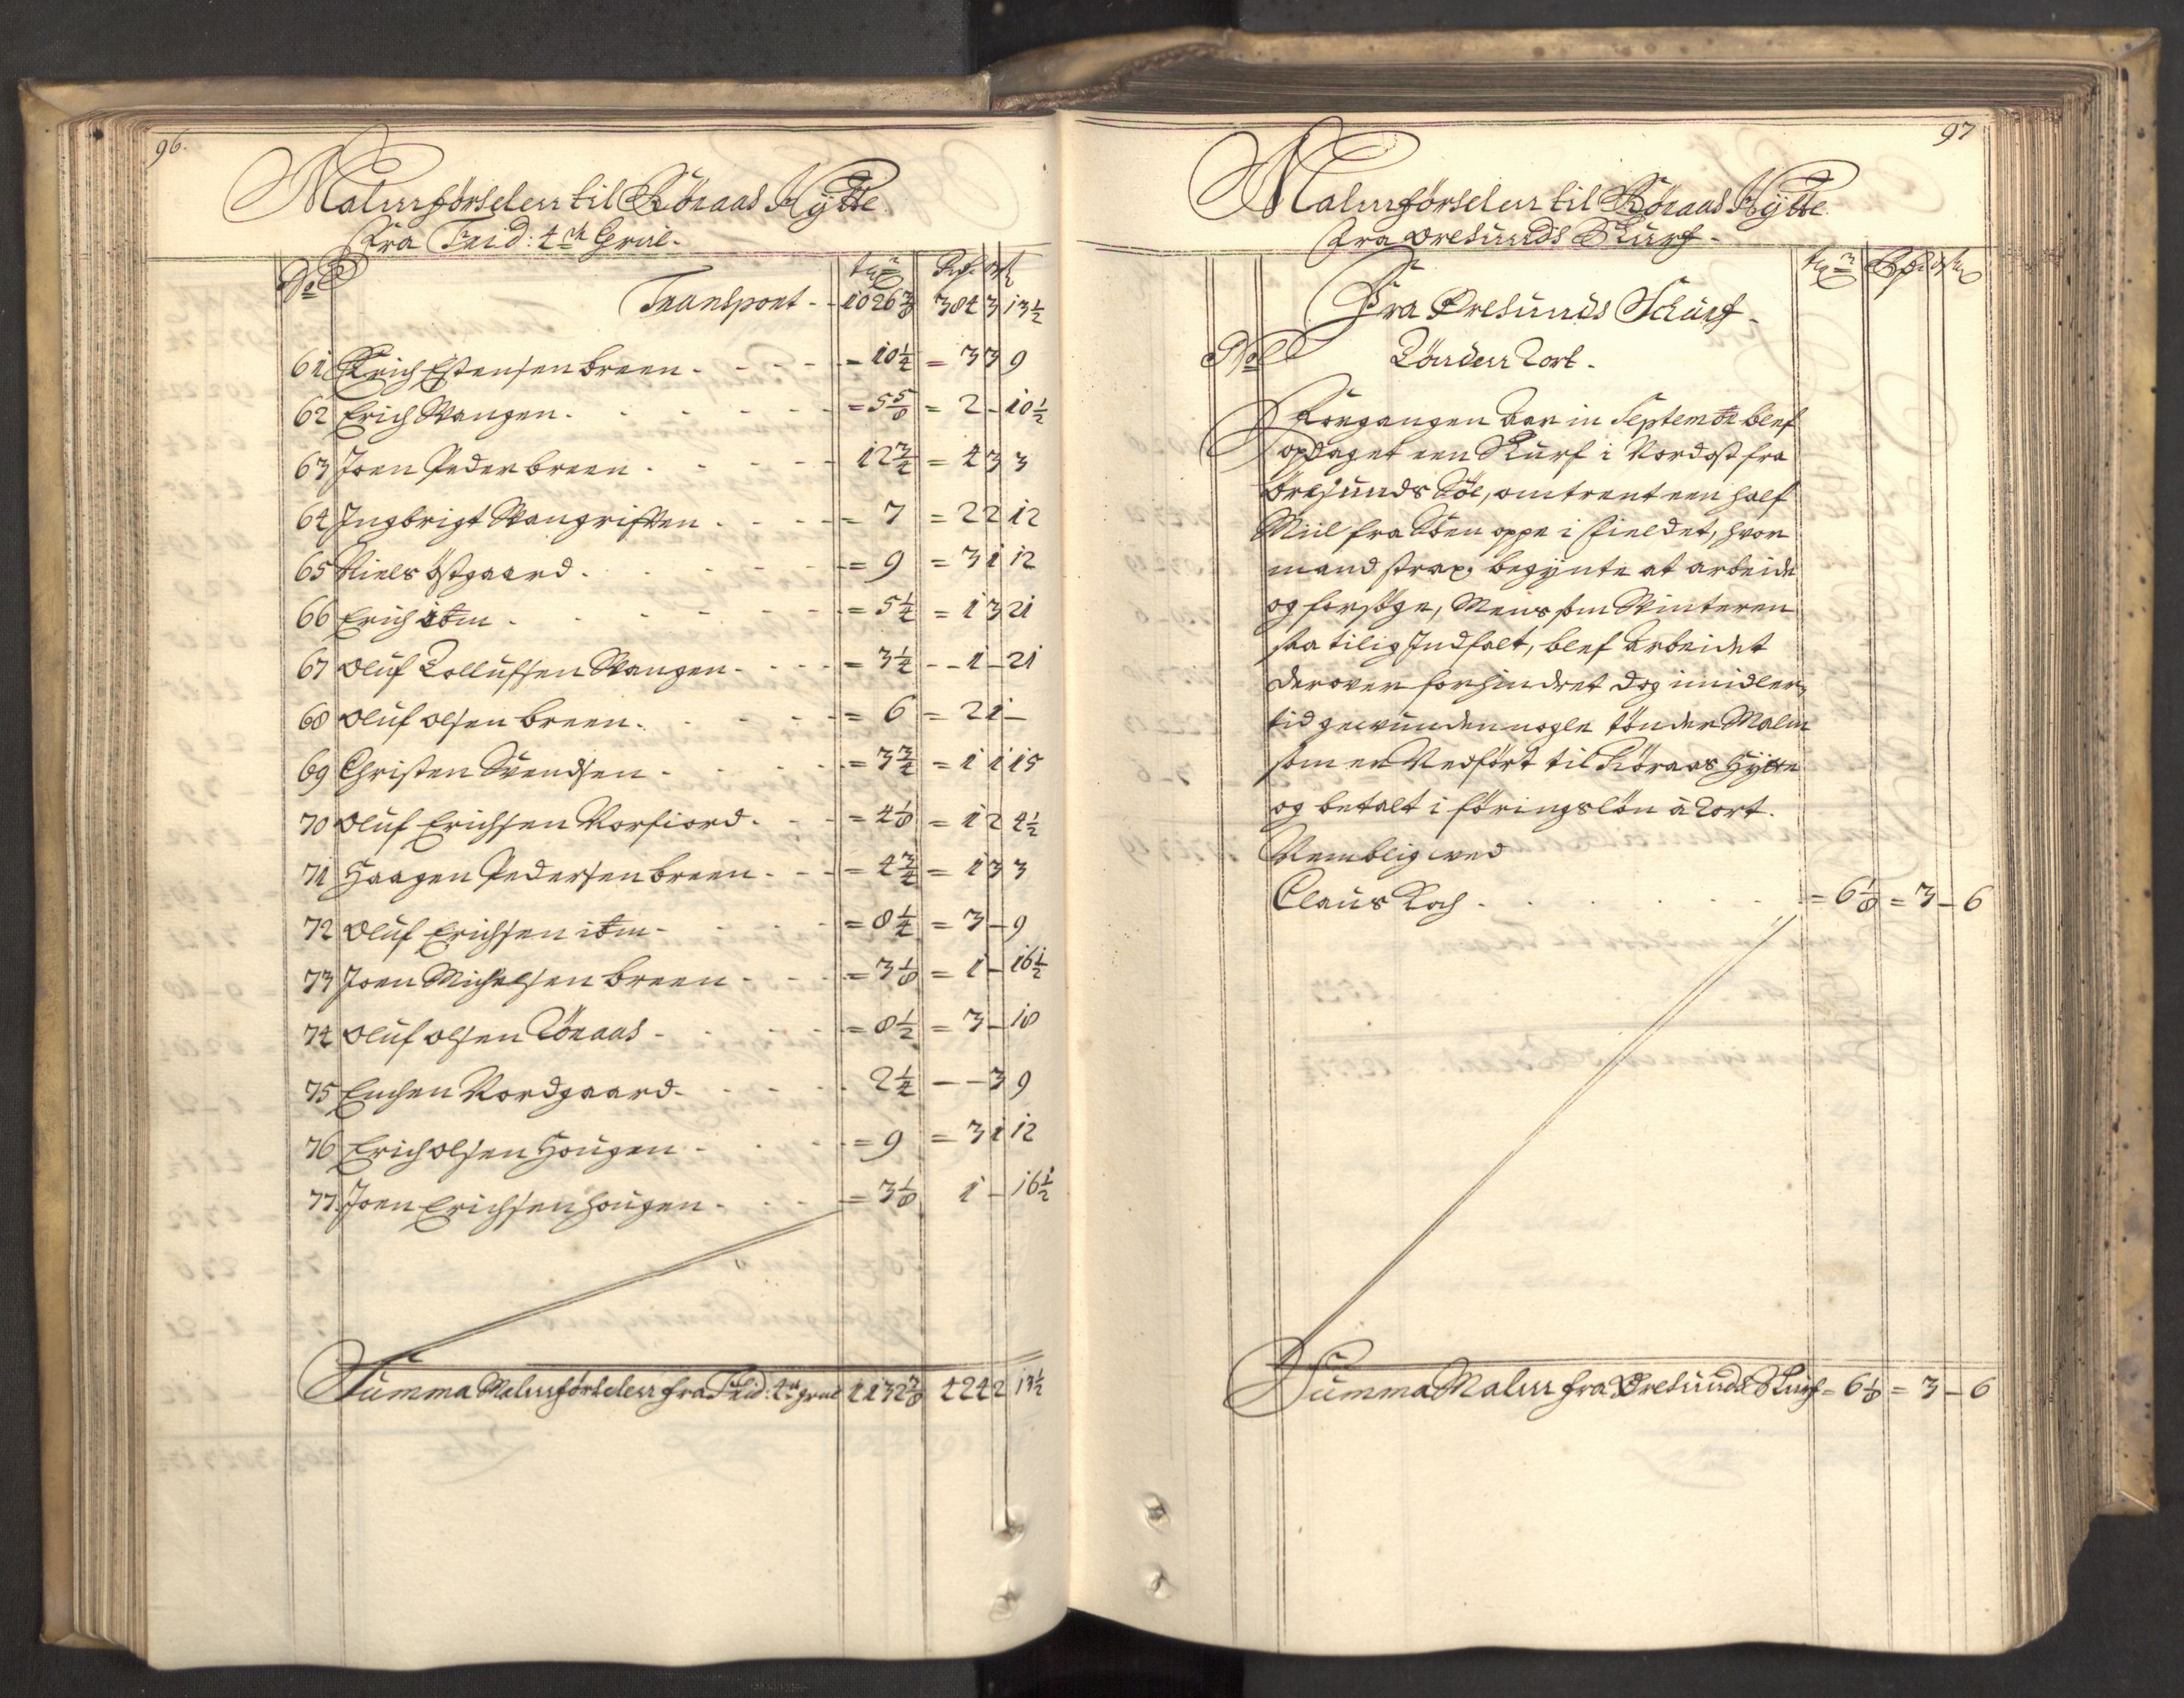 96.
Malmförselen til Röraas Hytte
Fra Frid: 4de Grue.
No tr Rdr ort ß
Transport - - 1026 7/8 384 3 13 1/2
61 Erich Estensen Breen - - - - = 10 1/4 = 3 3 9
62 Erich Wangen - - - - = 5 5/8 = 2 - 10 1/2
63 Joen Peder Breen - - - - 12 3/4 = 4 3 3
64 Ingbrigt Wangrisken - - - - = 7 = 2 2 12
65 Niels Östgaard - - - - = 9 = 3 1 12
66 Erich itm - - - - = 5 1/4 = 1 3 21
67 Oluf Tollufsen Wangen - - - - = 3 1/4 - - 1 - 21
68 Oluf Olsen Breen - - - - = 6 = 2 1 -
69 Christen Svendsen - - - - = 3 3/4 = 1 1 15
70 Oluf Erichsen Korfiord - - = 4 1/8 = 1 2 4 1/2
71 Haagen Pedersen Breen - - = 4 3/4 = 1 3 3
72 Oluf Erichsen itm - - - - = 8 1/4 = 3 - 9
73 Joen Michelsen Breen - - - = 3 1/8 = 1 - 16 1/2
74 Oluf Olsen Röraas - - - - = 8 1/2 = 3 - 18
75 Enchen Nordgaard - - - - 2 1/4 - - 3 9
76 Erich Olsen Hougen - - - = 9 = 3 1 12
77 Joen Erichsen Hougen - - - = 3 1/8 1 - 16 1/2
Summa Malmförselen fra Frid: 4de Grue 1132 7/8 424 2 13 1/2
97
Malmförselen til Röraas Hytte
Fra Öresunds Skurf -
tr Rdr ort ß
Fra Öresunds Schurf -
No Tönden 2 ort -
Forgangen Aar in Septembr blef
opdaget een Skurf i Nordost fra
Öresunds Söe, omtrent een half
Miil fra Söen oppe i Fieldet, hvor
mand strax begynte at arbeide
og forsöge, Mens som Winteren
saa tilig Indfalt, blef Arbeidet
derover forhindret dog imidler,
tid gewunden nogle tönder Malm
som er Nedfört til Röraas Hytte
og betalt i föringslön à 2 ort.
Nemblig med
Claus Koch - - - - - = 6 1/8 = 3 - 6
Summa Malm fra Öresunds Skurf = 6 1/8 = 3 - 6